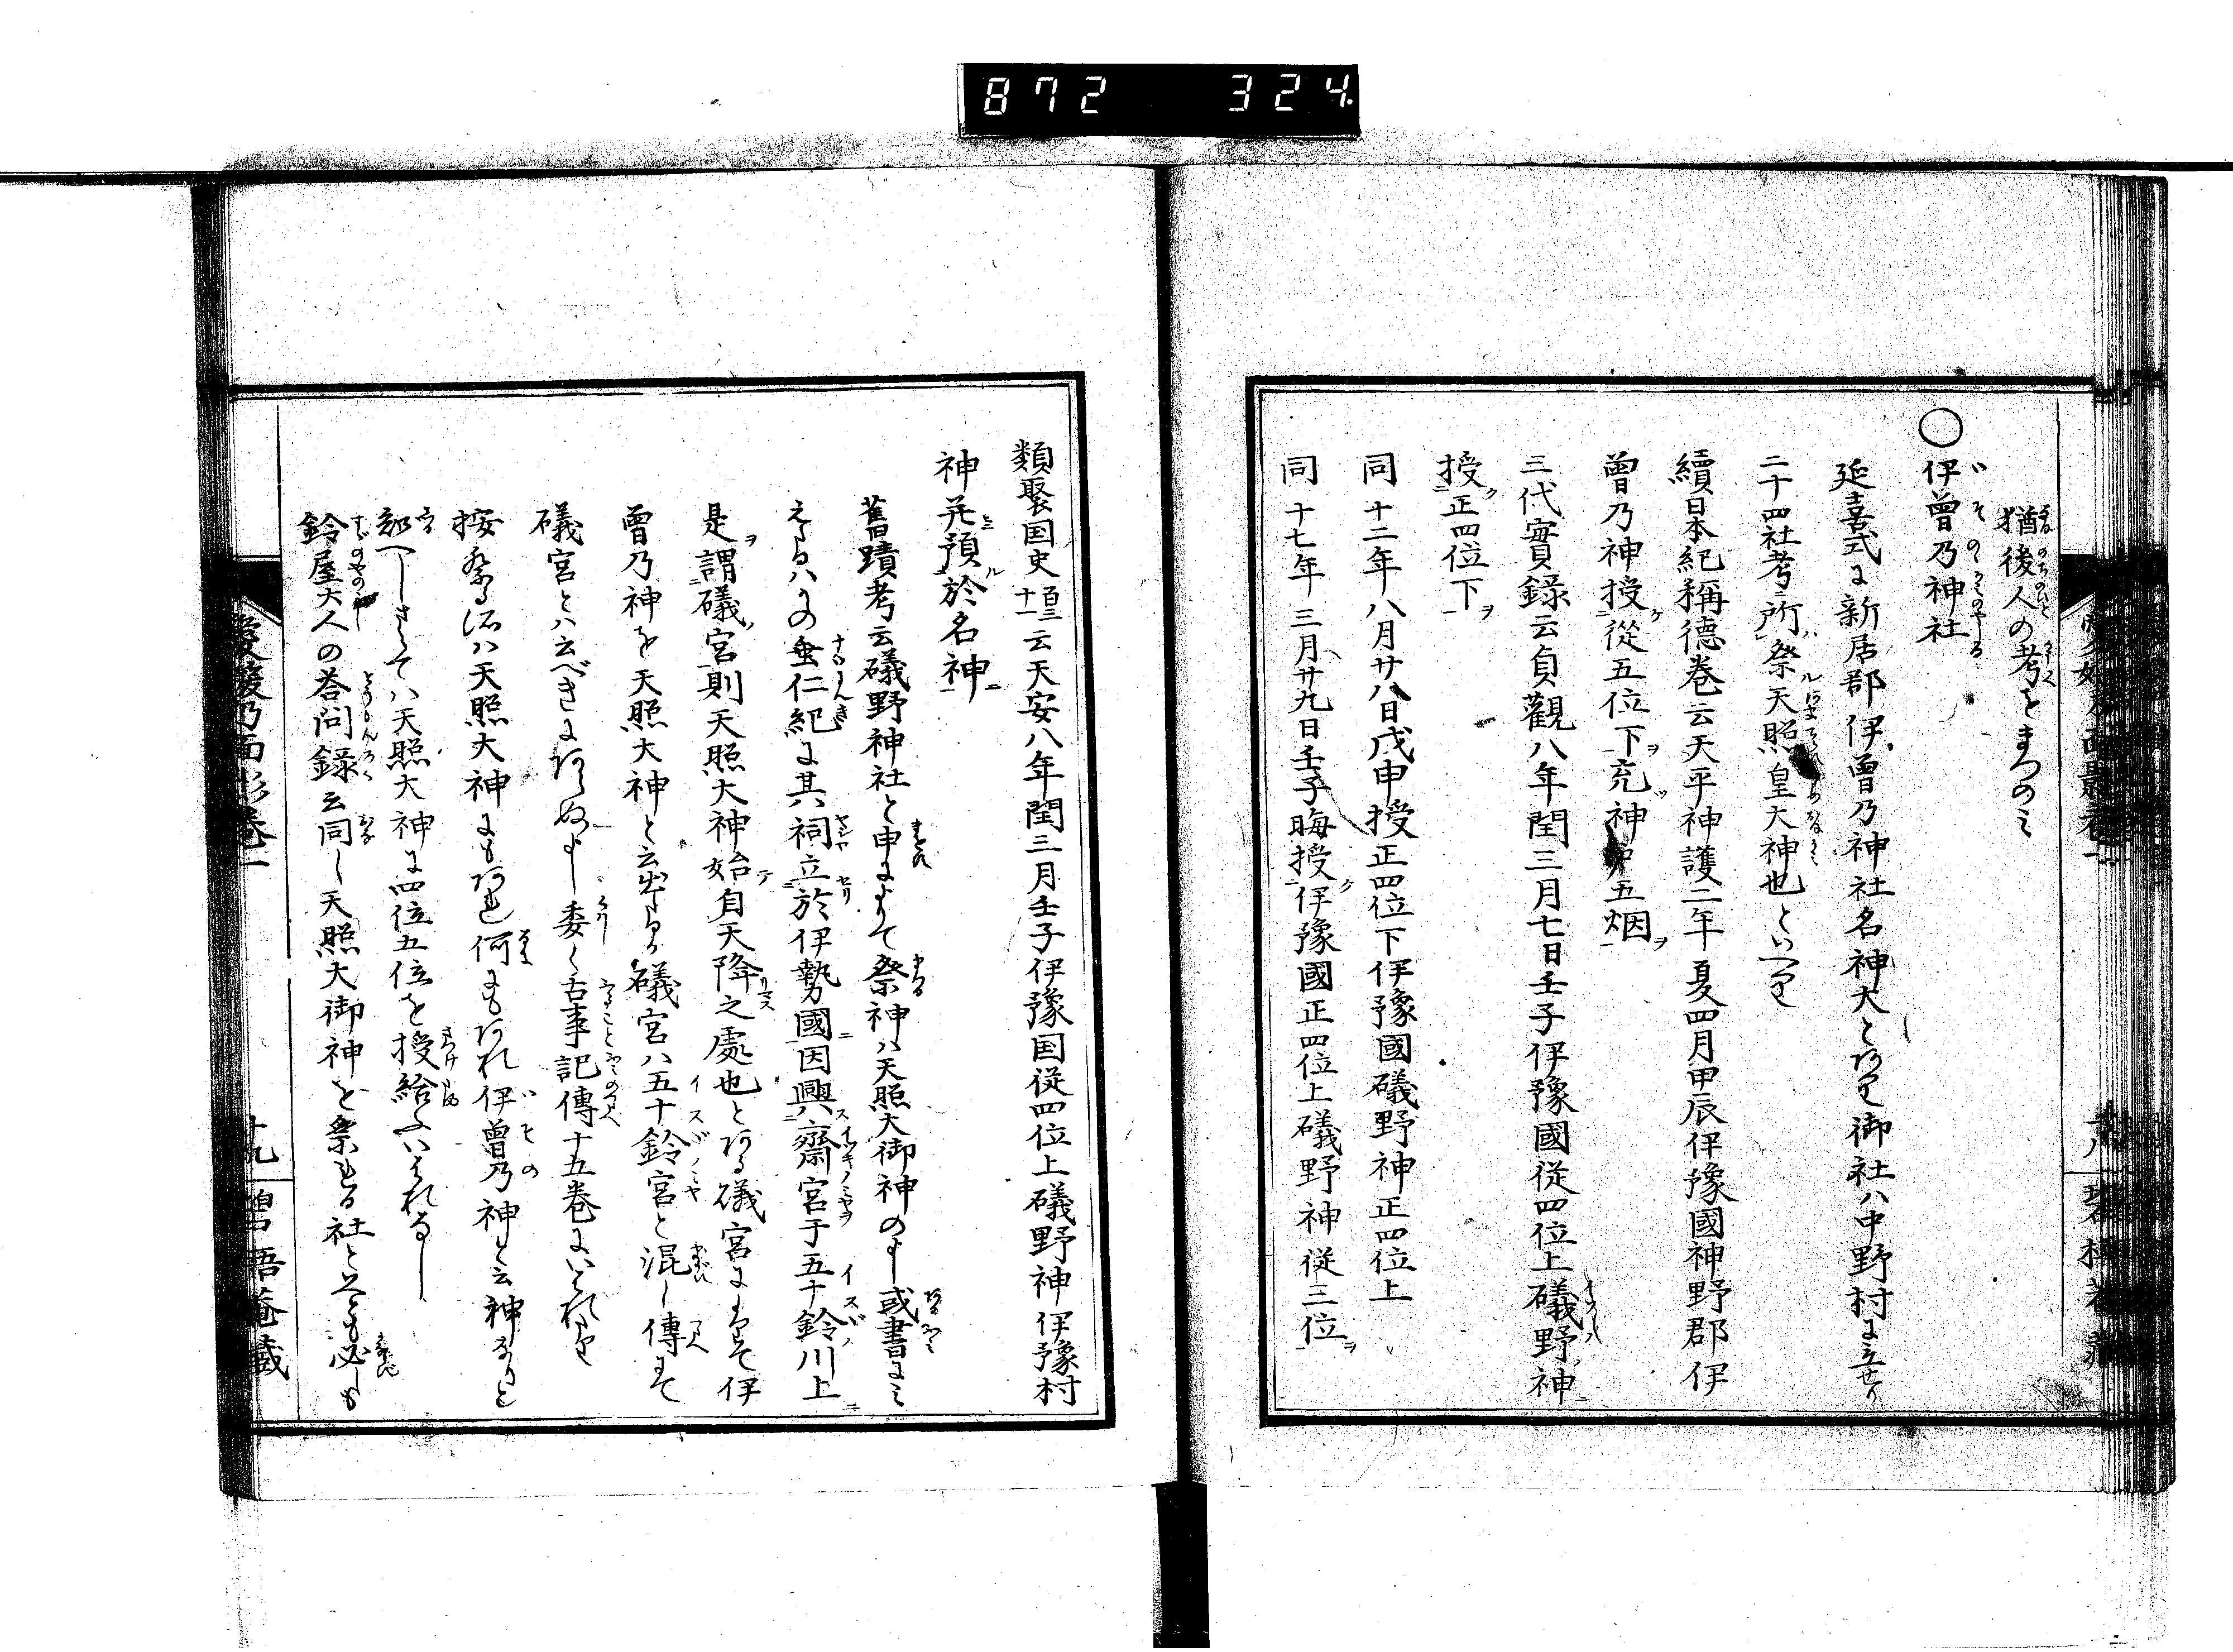 872 324
猶後人の考をまつのミ
○伊曾乃神社
延喜式に新居郡伊曾乃神社名神大とあり御社ハ中野村に立せり
二十四社考ニ所祭天照皇大神也といへり
續日本紀稱德卷云天平神護二年夏四月甲辰伊豫國神野郡伊
曾乃神授從五位下充神戸五烟
三代實錄云貞觀八年閏三月七日壬子伊豫國從四位上礒野神
授正四位下
同十二年八月廿八日戊申授正四位下伊豫國礒野神正四位上
同十七年三月廿九日壬子晦授伊豫國正四位上礒野神從三位
類聚国史云天安八年閏三月壬子伊豫国從四位上礒野神伊豫村
神并預於名神
舊蹟考云礒野神社と申によりて祭神ハ天照大御神のよし或書にミ
えたるハかの垂仁紀に其祠立於伊勢國因興齋宮于五十鈴川上
是謂礒宮則天照大神始自天降之處也とある礒宮によりて伊
曾乃神を天照大神と云出たるか礒宮ハ五十鈴宮と混し傳にて
礒宮とハ云べきにあらぬよし委く古事記傳十五卷にいはれたり
按る派ハ天照大神にもあれ何にもあれ伊曾乃神と云神なりと
さてハ天照大神に四位五位を授給ふいはれなし
鈴屋大人の答问錄云同し天照大御神を祭れる社といへとも必しも
愛媛乃面影卷一
十九
碧梧菴藏